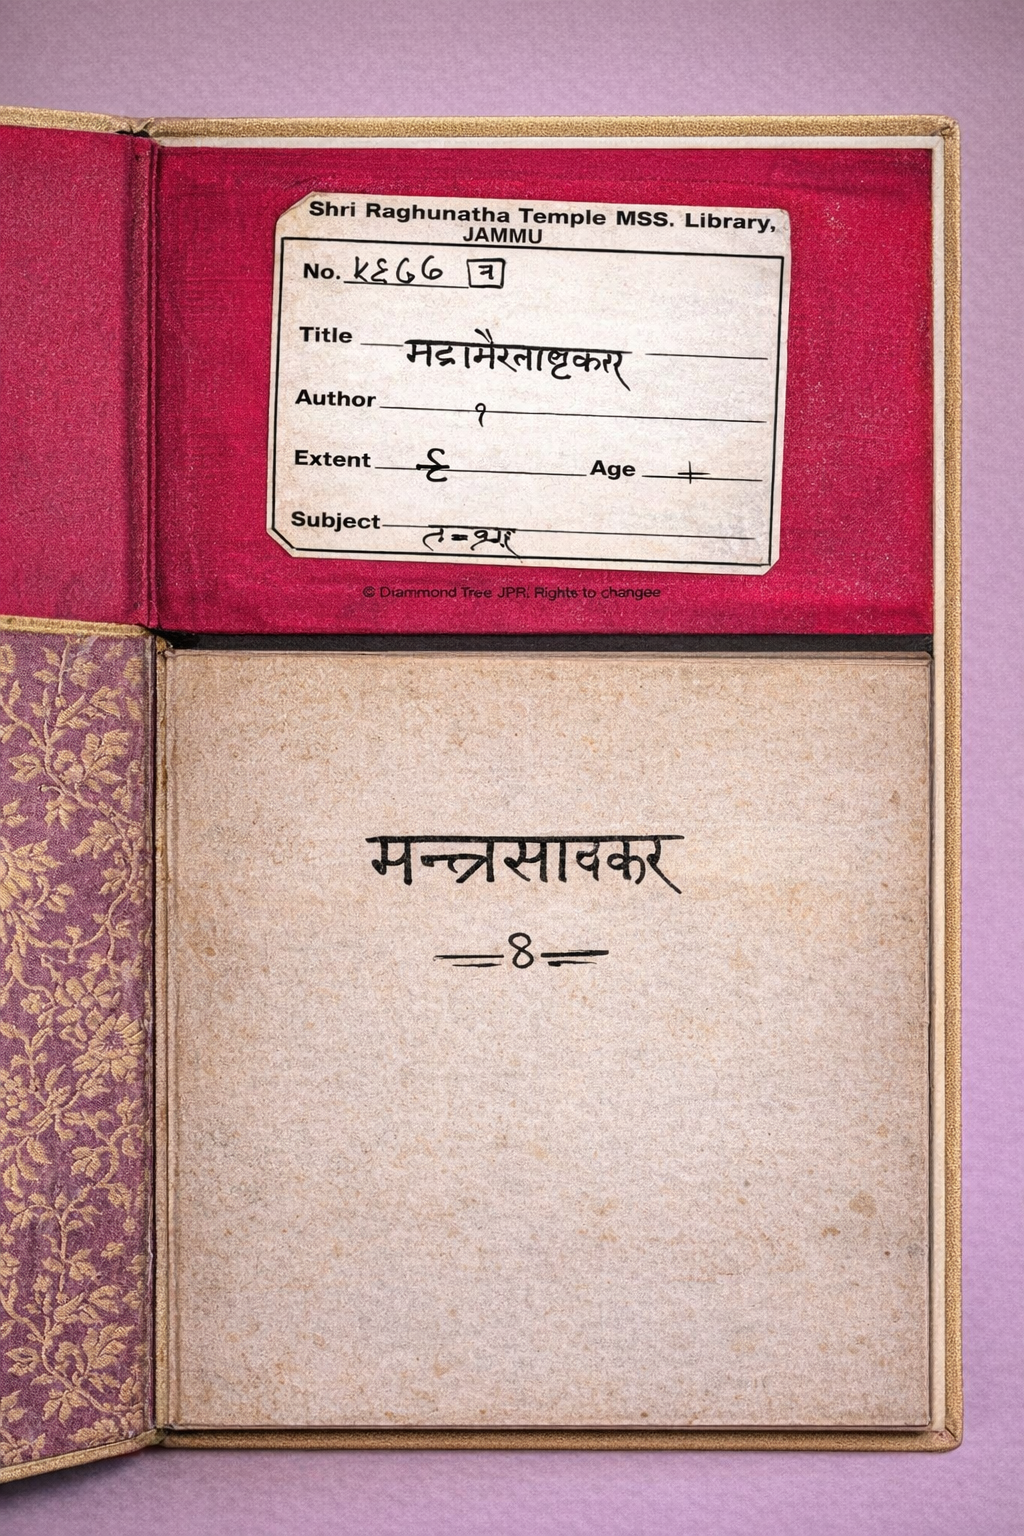 Shri Raghunatha Temple MSS. Library,
JAMMU
No. ५६७७ त्र
Title
Author १
Extent ६ Age +
Subject
© Diammond Tree JPR. Rights to changee
मन्त्रसावकर
=8=